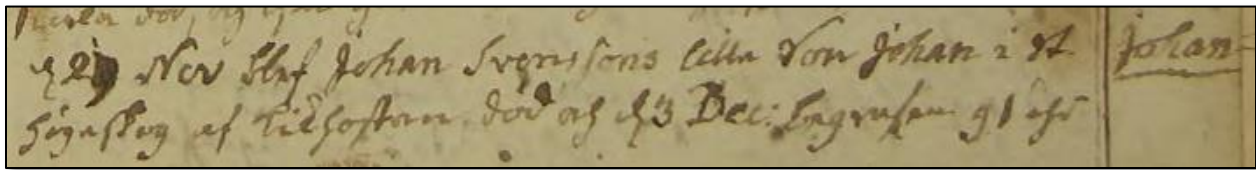 d 29 Nov blef Johan Svenssons lilla Son Johan i St Johan
högaskog af Kikhostan död och d 3 Dec: begrafen 1 åhr